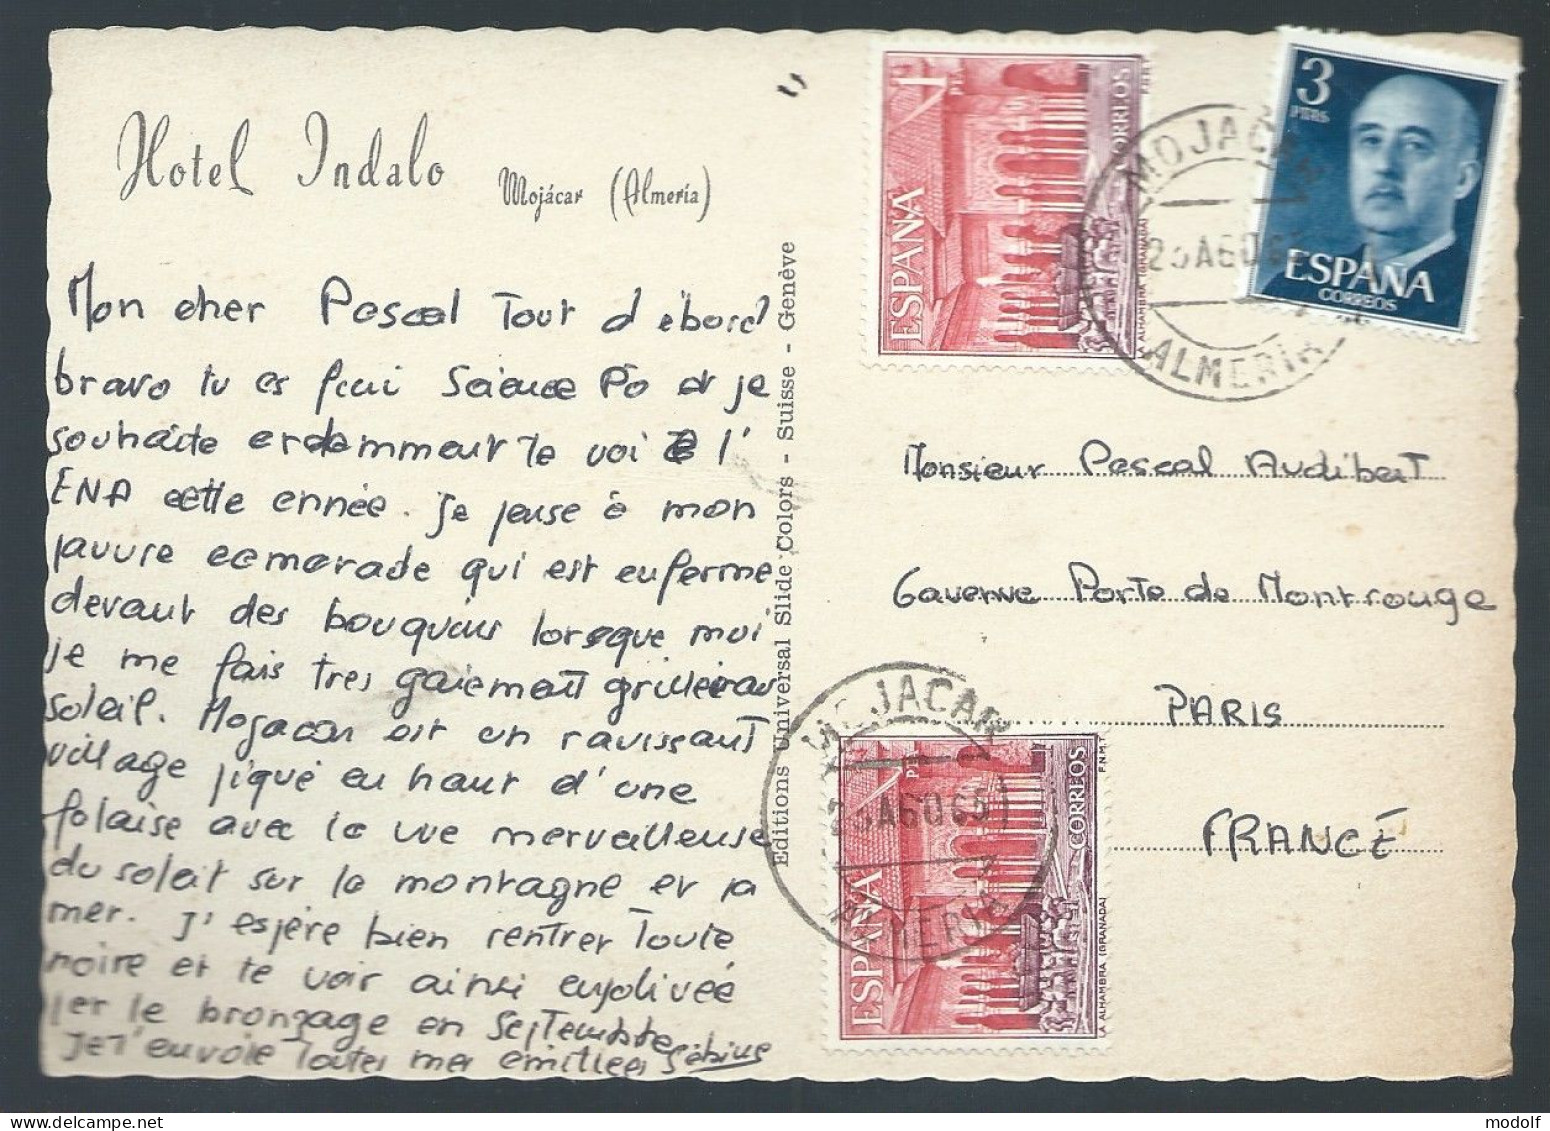 Hotel Indalo Mojácar (Almería)
Mon cher Pascal Tout d'abord
bravo tu es fini Science Po et je
souhaite ardemment te voir à l'
ENA cette année. Je pense à mon
pauvre camarade qui est enfermé
devant des bouquins lorsque moi
je me fais très gaiement griller au
soleil. Mojacar est un ravissant
village piqué en haut d'une
falaise avec la vue merveilleuse
du soleil sur la montagne et la
mer. J'espère bien rentrer toute
noire et te voir ainsi enjolivée
per le bronzage en Septembre
Je t'envoie toutes mes amitiés
Editions Universal Slide Colors - Suisse - Genève
1 PTA
ESPAÑA
CORREOS
LA ALHAMBRA (GRANADA)
F.N.M.T
3
PTAS
ESPAÑA
CORREOS
MOJACAR
AGO
ALMERIA
Monsieur Pascal Audibert
Caverne Porte de Montrouge
PARIS
FRANCE
MOJACAR
AGO 65
ALMERIA
1 PTA
ESPAÑA
CORREOS
LA ALHAMBRA (GRANADA)
F.N.M.T
modolf